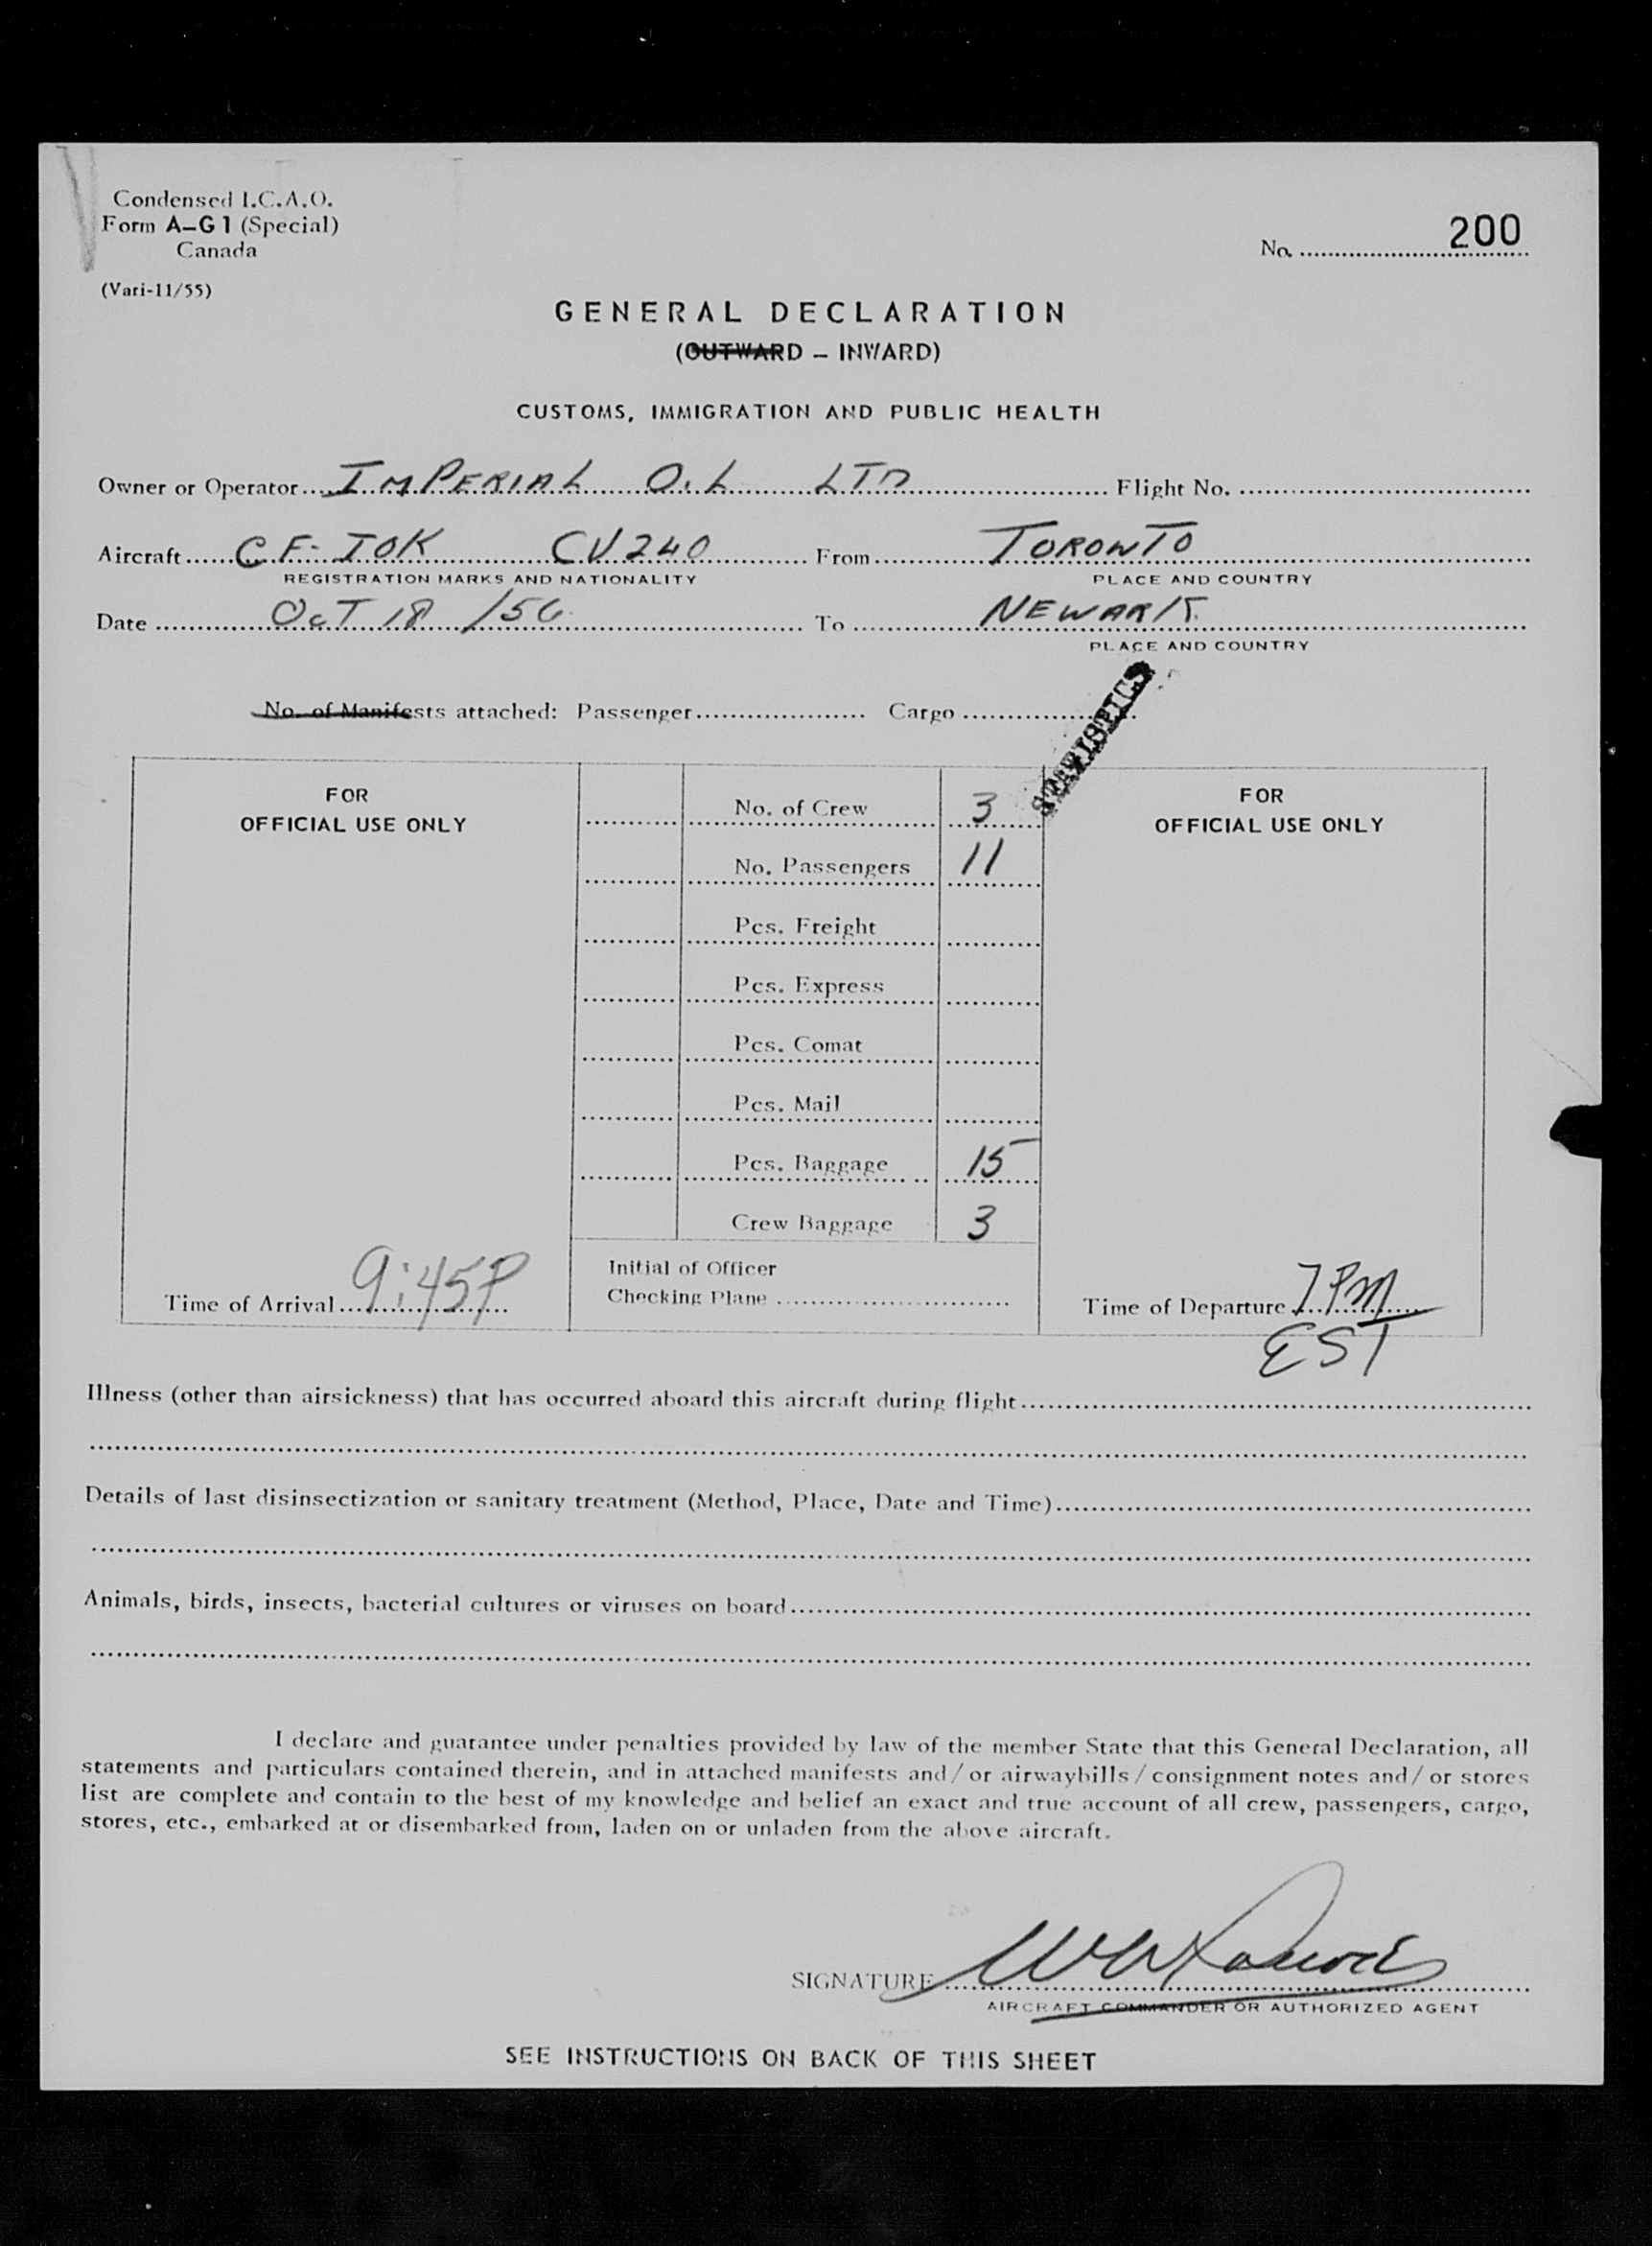 Condensed I.C.A.O.
Form A-G1 (Special)
Canada
(Vari-11/55)
No. 200
GENERAL DECLARATION
(OUTWARD - INWARD)
CUSTOMS, IMMIGRATION AND PUBLIC HEALTH
Owner or Operator IMPERIAL OIL LTD Flight No.
Aircraft CF-IOK CV240 From TORONTO
REGISTRATION MARKS AND NATIONALITY PLACE AND COUNTRY
Date OCT 18 /56 To NEWARK
PLACE AND COUNTRY
No. of Manifests attached: Passenger Cargo
STATISTICS
FOR
OFFICIAL USE ONLY
No. of Crew 3
No. Passengers 11
Pcs. Freight
Pcs. Express
Pcs. Comat
Pcs. Mail
Pcs. Baggage 15
Crew Baggage 3
FOR
OFFICIAL USE ONLY
Time of Arrival 9:45P
Initial of Officer
Checking Plane
Time of Departure 7 PM
EST
Illness (other than airsickness) that has occurred aboard this aircraft during flight
Details of last disinsectization or sanitary treatment (Method, Place, Date and Time)
Animals, birds, insects, bacterial cultures or viruses on board
I declare and guarantee under penalties provided by law of the member State that this General Declaration, all
statements and particulars contained therein, and in attached manifests and/or airwaybills/consignment notes and/or stores
list are complete and contain to the best of my knowledge and belief an exact and true account of all crew, passengers, cargo,
stores, etc., embarked at or disembarked from, laden on or unladen from the above aircraft.
SIGNATURE
AIRCRAFT COMMANDER OR AUTHORIZED AGENT
SEE INSTRUCTIONS ON BACK OF THIS SHEET